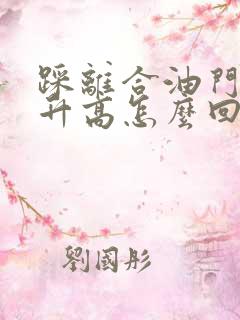 踩離合油門
升高怎麼回
劉國彤